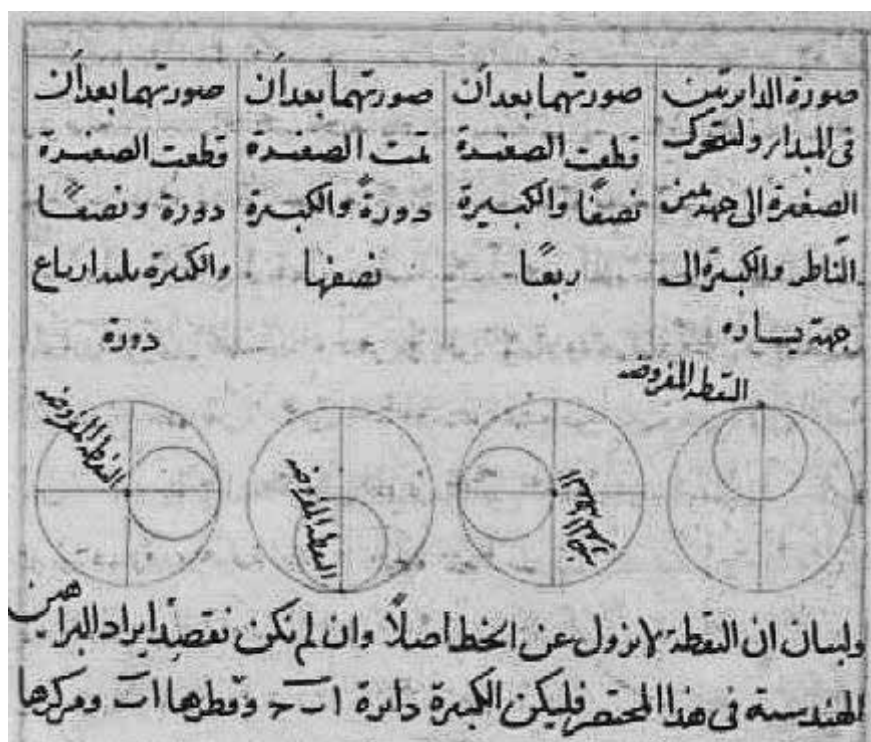 صورة الدائرتين
فى المبدا ولتتحرك
الصغيرة الى جهة يمين
الناظر والكبيرة الى
جهة يساره
صورتهما بعد أن
قطعت الصغيرة
نصفًا والكبيرة
ربعًا
صورتهما بعد أن
تمت الصغيرة
دورةً والكبيرة
نصفها
صورتهما بعد أن
قطعت الصغيرة
دورة ونصفًا
والكبيرة ثلثة ارباع
دورة
النقطة المفروضة
النقطة المفروضة
النقطة المفروضة
ولبيان ان النقطة لا تزول عن الخط اصلًا وان لم نكن نقصد ايراد البراهين
الهندسية فى هذا المختصر فليكن الكبيرة دائرة ا ب ج وقطرها ا ب ومركزها